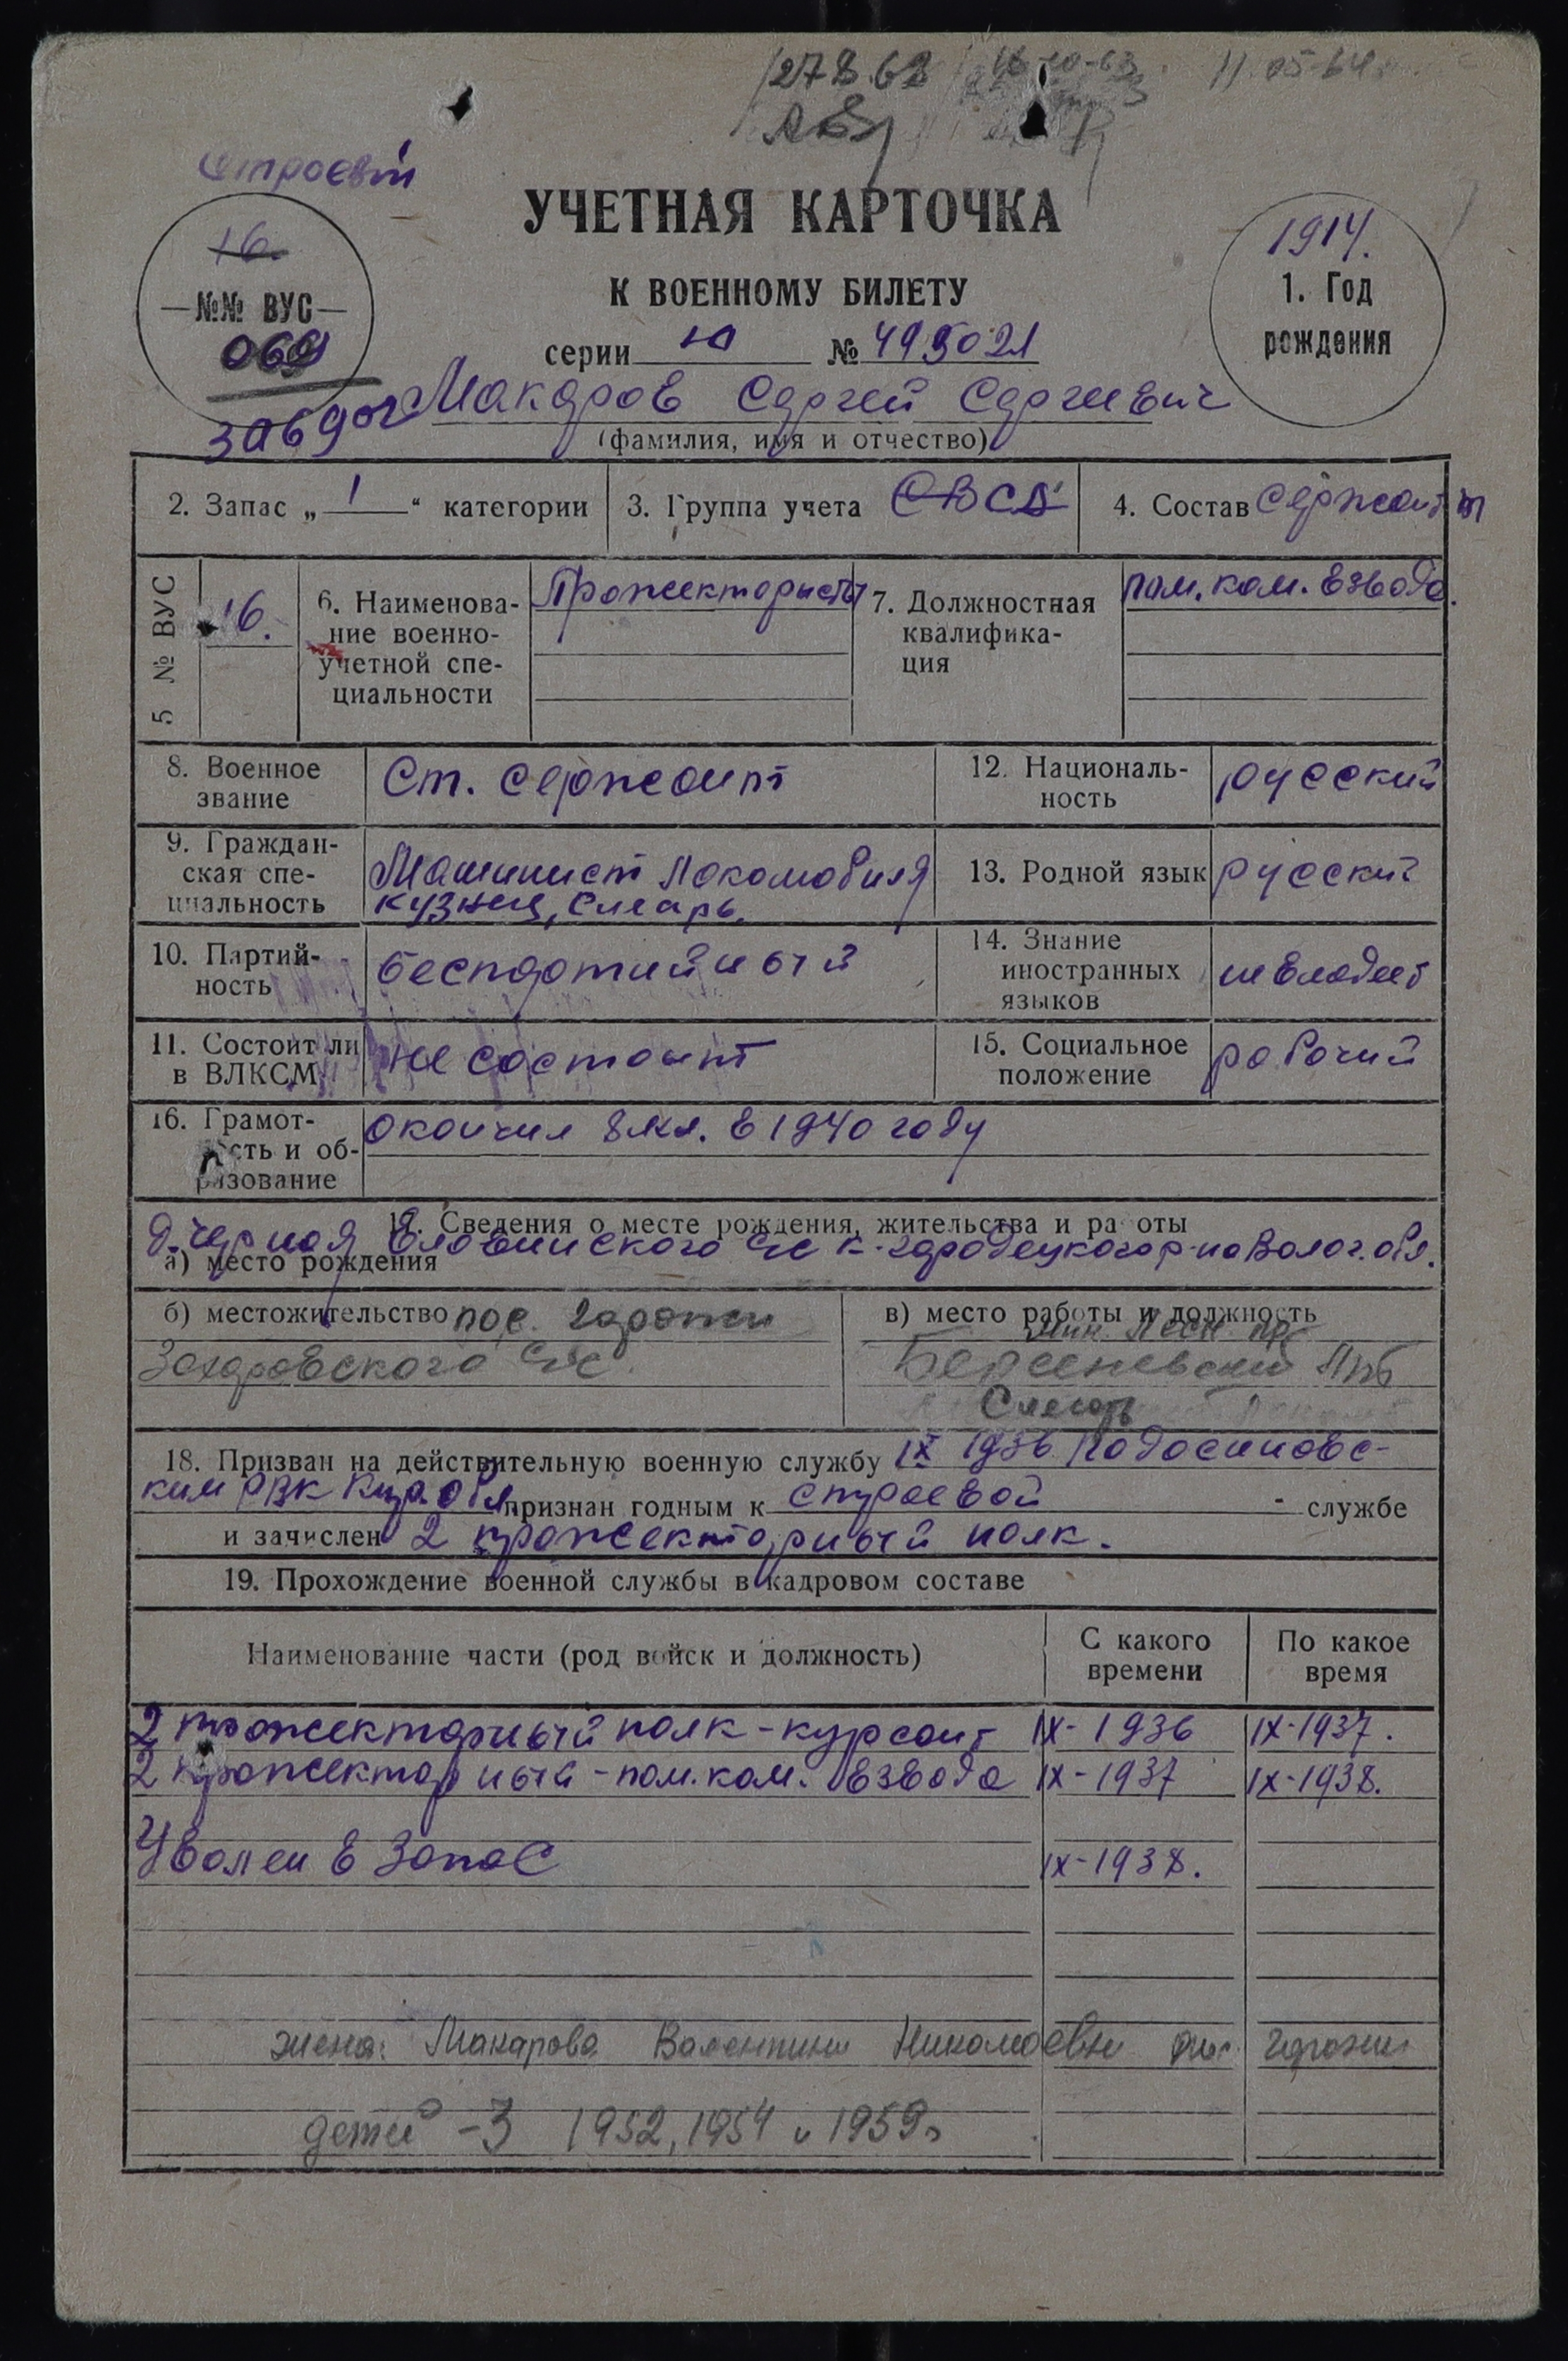 27 8.63 16-10-63 11.05-64
Строевой
УЧЕТНАЯ КАРТОЧКА
16.
1914.
—№№ ВУС—
К ВОЕННОМУ БИЛЕТУ
1. Год
рождения
069
серии Ю № 495021
Макаров Сергей Сергеевич
(фамилия, имя и отчество)
2. Запас „ 1 “ категории
3. Группа учета
4. Состав Сержант
5 № ВУС
16.
6. Наименова-
ние военно-
учетной спе-
циальности
Прожектористы
7. Должностная
квалифика-
ция
пом. ком. взвода.
8. Военное
звание
Ст. сержант
12. Националь-
ность
русский
9. Граждан-
ская спе-
циальность
Машинист локомобиля
кузнец, слесарь.
13. Родной язык
русский
10. Партий-
ность
беспартийный
14. Знание
иностранных
языков
не владеет
11. Состоит ли
в ВЛКСМ
не состоит
15. Социальное
положение
рабочий
16. Грамот-
ность и об-
разование
окончил 8 кл. в 1940 году
17. Сведения о месте рождения, жительства и работы
д. Черная Еловинского с/с К-городецкого р-на Волог. обл.
а) место рождения
б) местожительство пос. Гарожи
Захаровского с/с
в) место работы и должность
Мин. Лесн. пр.
Слесарь
18. Призван на действительную военную службу IX 1936 Подосиновс-
ким РВК Кир. обл. признан годным к строевой службе
и зачислен 2 прожекторный полк.
19. Прохождение военной службы в кадровом составе
Наименование части (род войск и должность)
С какого
времени
По какое
время
2 прожекторный полк - курсант IX-1936 IX-1937.
2 прожекторный - пом. ком. взвода IX-1937 IX-1938.
Уволен в запас IX-1938.
жена: Макарова Валентина Николаевна пос. Гарожи
детей - 3 1952, 1954 и 1959г